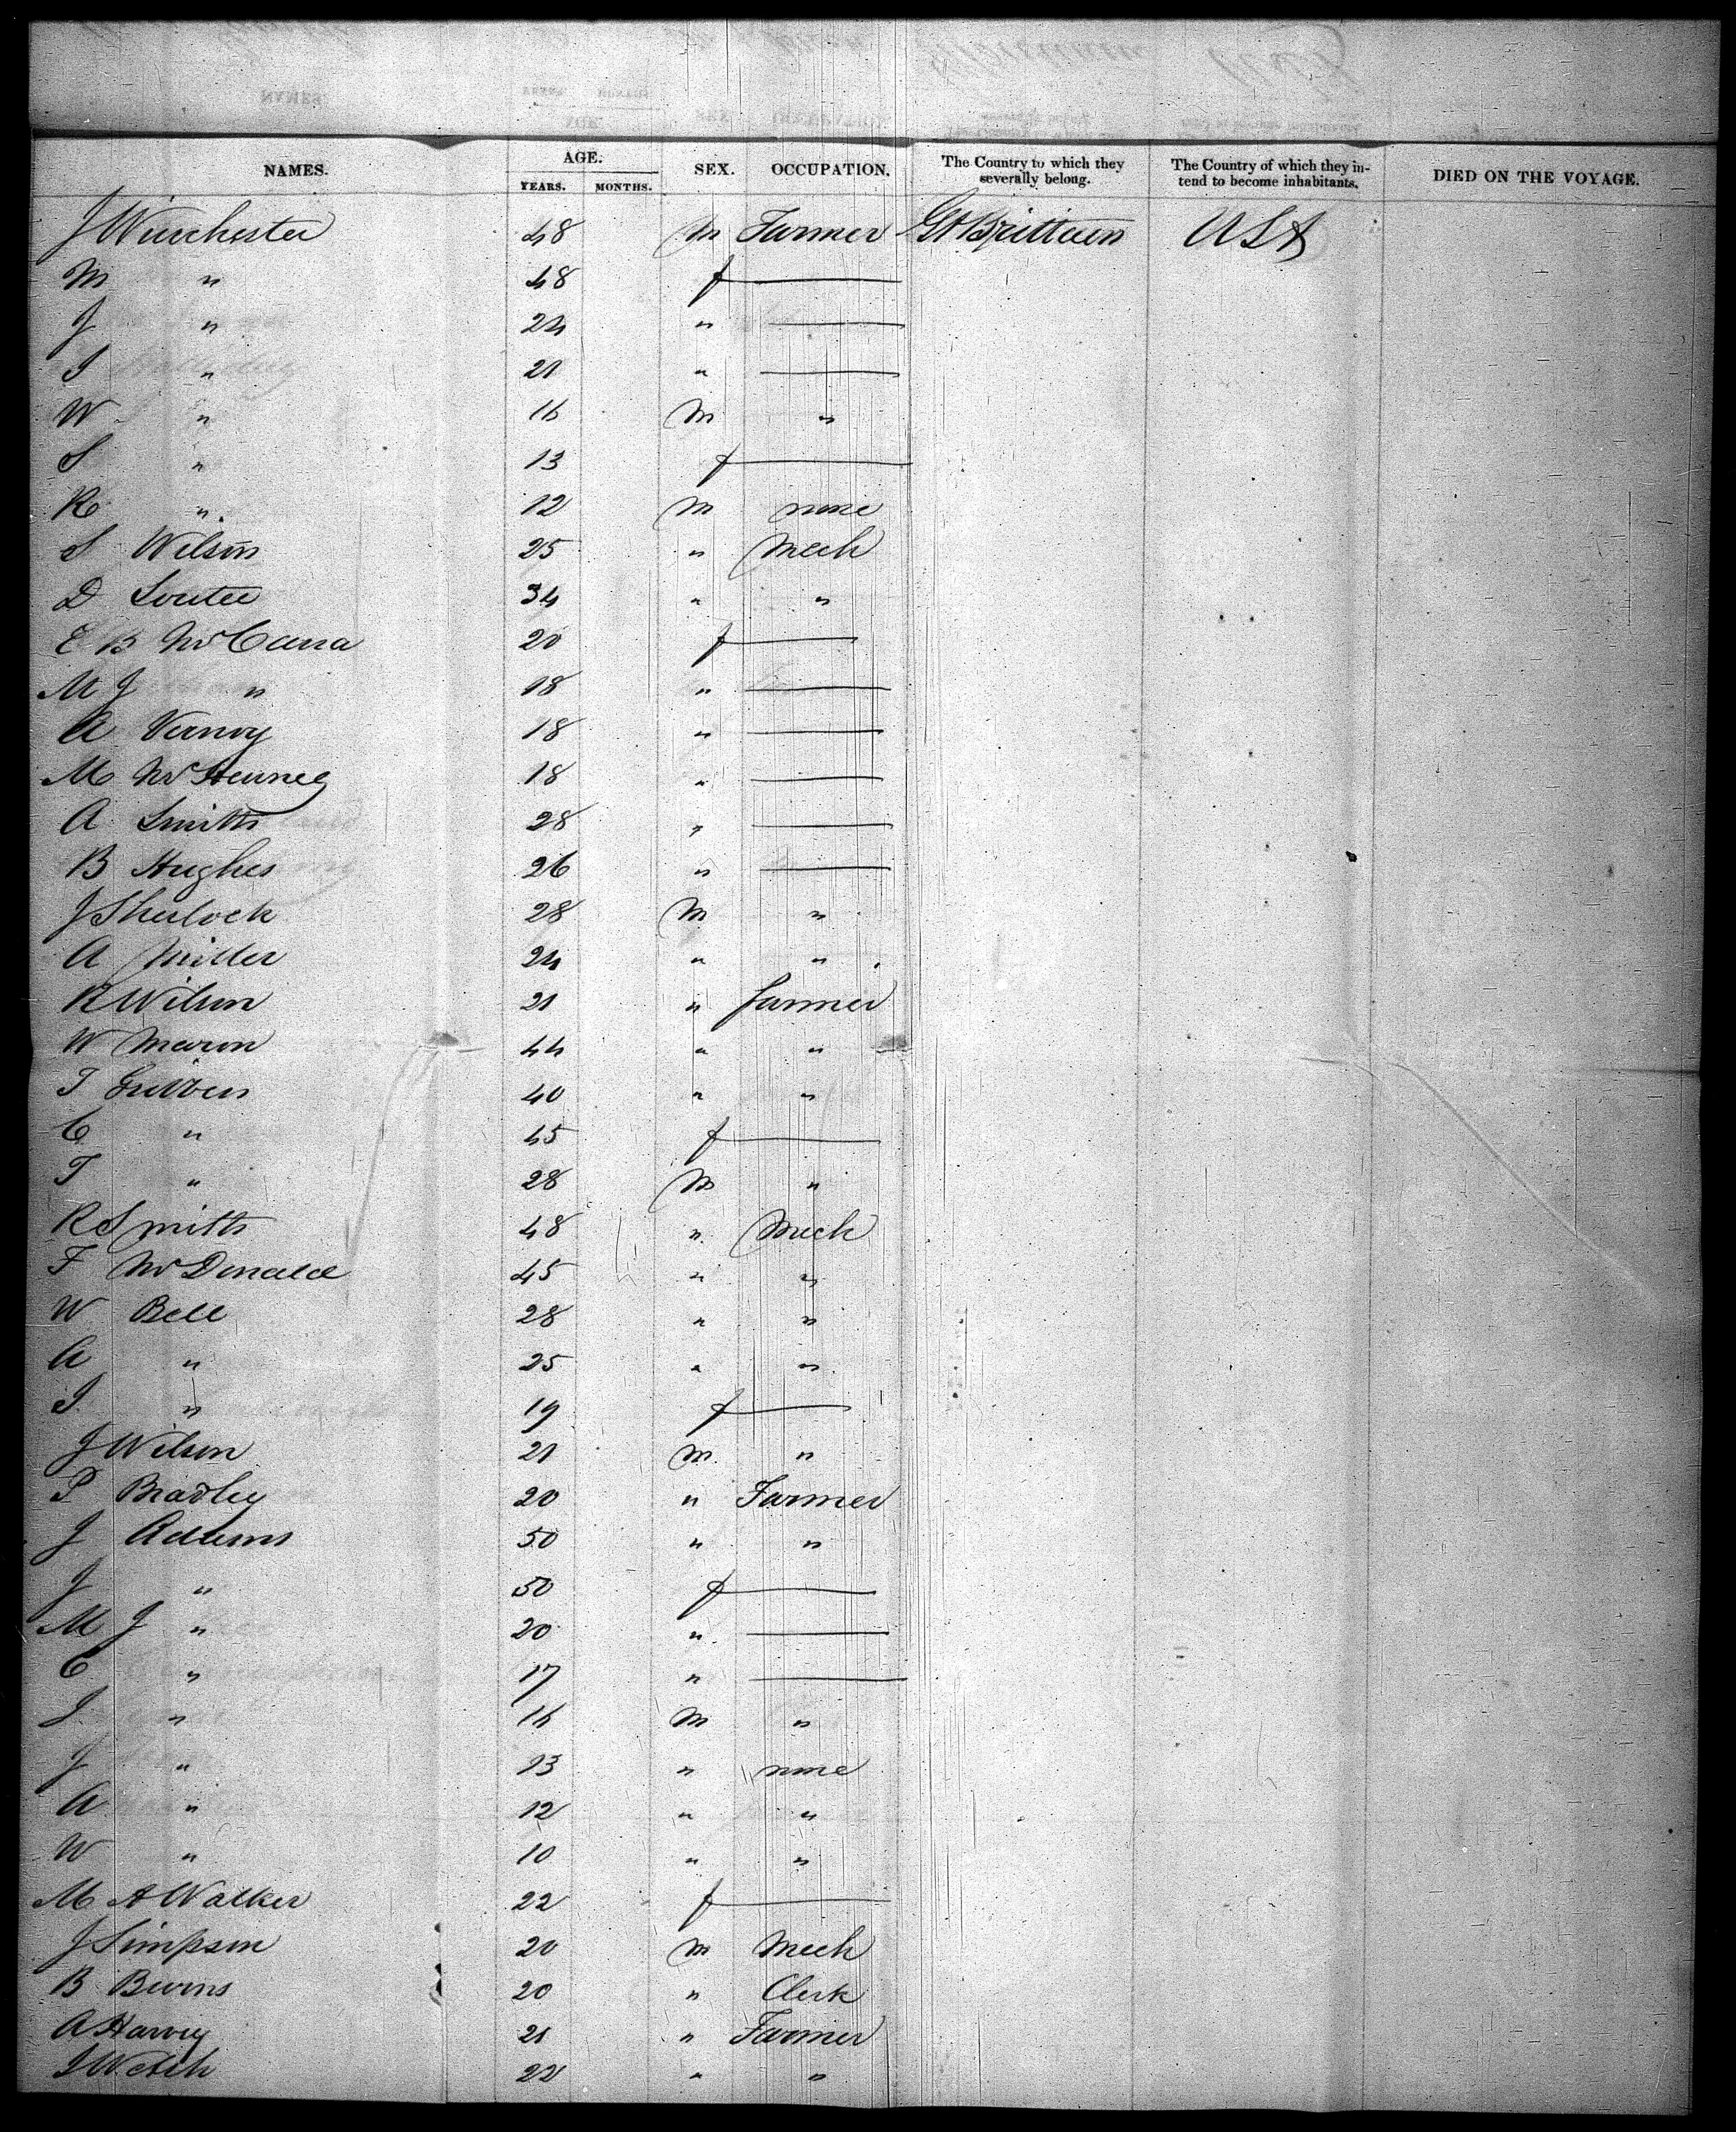 NAMES. AGE. YEARS. MONTHS. SEX. OCCUPATION. The Country to which they severally belong. The Country of which they intend to become inhabitants. DIED ON THE VOYAGE.
J Winchester 48 m Farmer Gt Brittain USA
M " 48 f
J " 24 "
S " 21 "
W " 16 M "
S " 13 f
R " 12 m none
S Wilson 25 " Mech
D Souter 34 " "
E B McCanna 20 f
M J " 18 "
A Vernoy 18 "
M McHenney 18 "
A Smith 28 "
B Hughes 26 "
J Sherlock 28 M "
A Miller 24 " "
R Wilson 21 " farmer
W Maron 44 " "
T 40 " "
C " 45 f
T " 28 M "
R Smith 48 " Mech
F McDonald 45 " "
W Bell 28 " "
A " 25 " "
S " 19 f
J Wilson 21 m "
P Bradley 20 " Farmer
J Adams 50 " "
J " 50 f
M J " 20 "
C " 17 "
S " 16 M "
J " 13 " none
A " 12 " "
W " 10 " "
M A Walker 22 f
J Simpson 20 m Mech
B Burns 20 " Clerk
A Harvey 21 " Farmer
J Welsh 22 " "